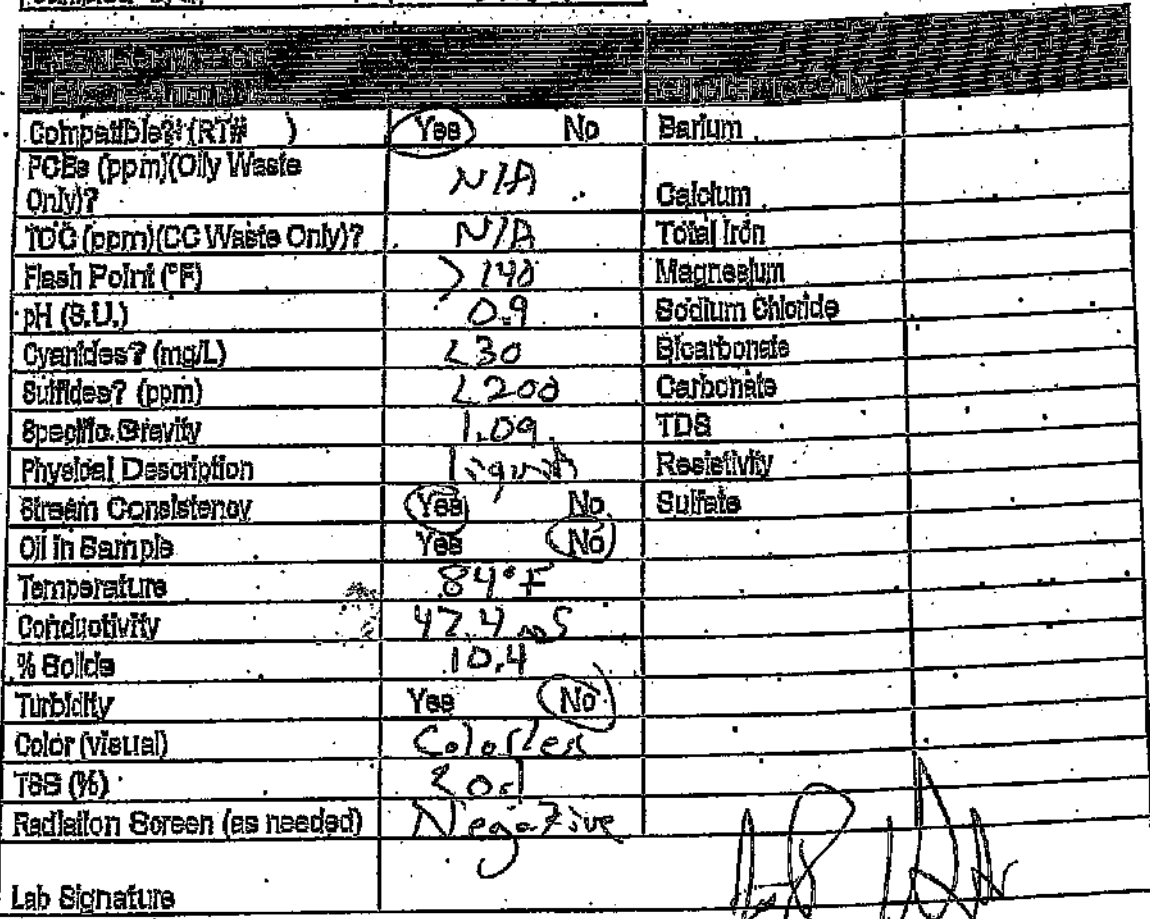 Compatible? (RT# ) Yes No Barium
PCBs (ppm)(Oily Waste
Only)? N/A Calcium
TOC (ppm)(CC Waste Only)? N/A Total Iron
Flash Point (°F) >140 Magnesium
pH (S.U.) 0.9 Sodium Chloride
Cyanides? (mg/L) <30 Bicarbonate
Sulfides? (ppm) <200 Carbonate
Specific Gravity 1.09 TDS
Physical Description liquid Resistivity
Stream Consistency Yes No Sulfate
Oil in Sample Yes No
Temperature 84°F
Conductivity 47.4 mS
% Solids 10.4
Turbidity Yes No
Color (visual) Colorless
TSS (%) <0.1
Radiation Screen (as needed) Negative
Lab Signature